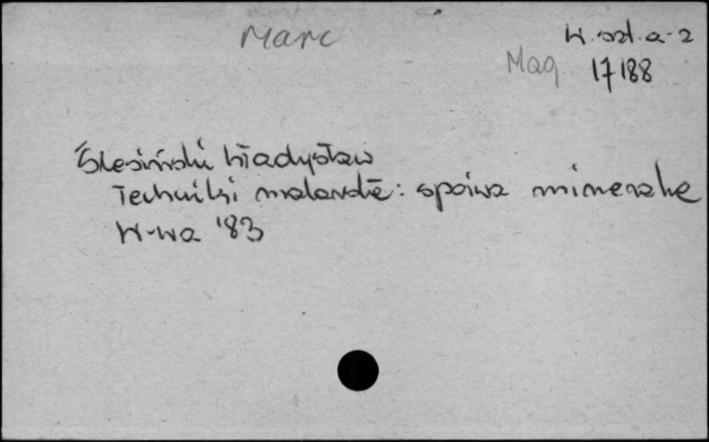 Marc
W. szt. a-2
Mag 17188
Ślesiński Władysław
Techniki malarskie: spoiwa mineralne
W-wa '83